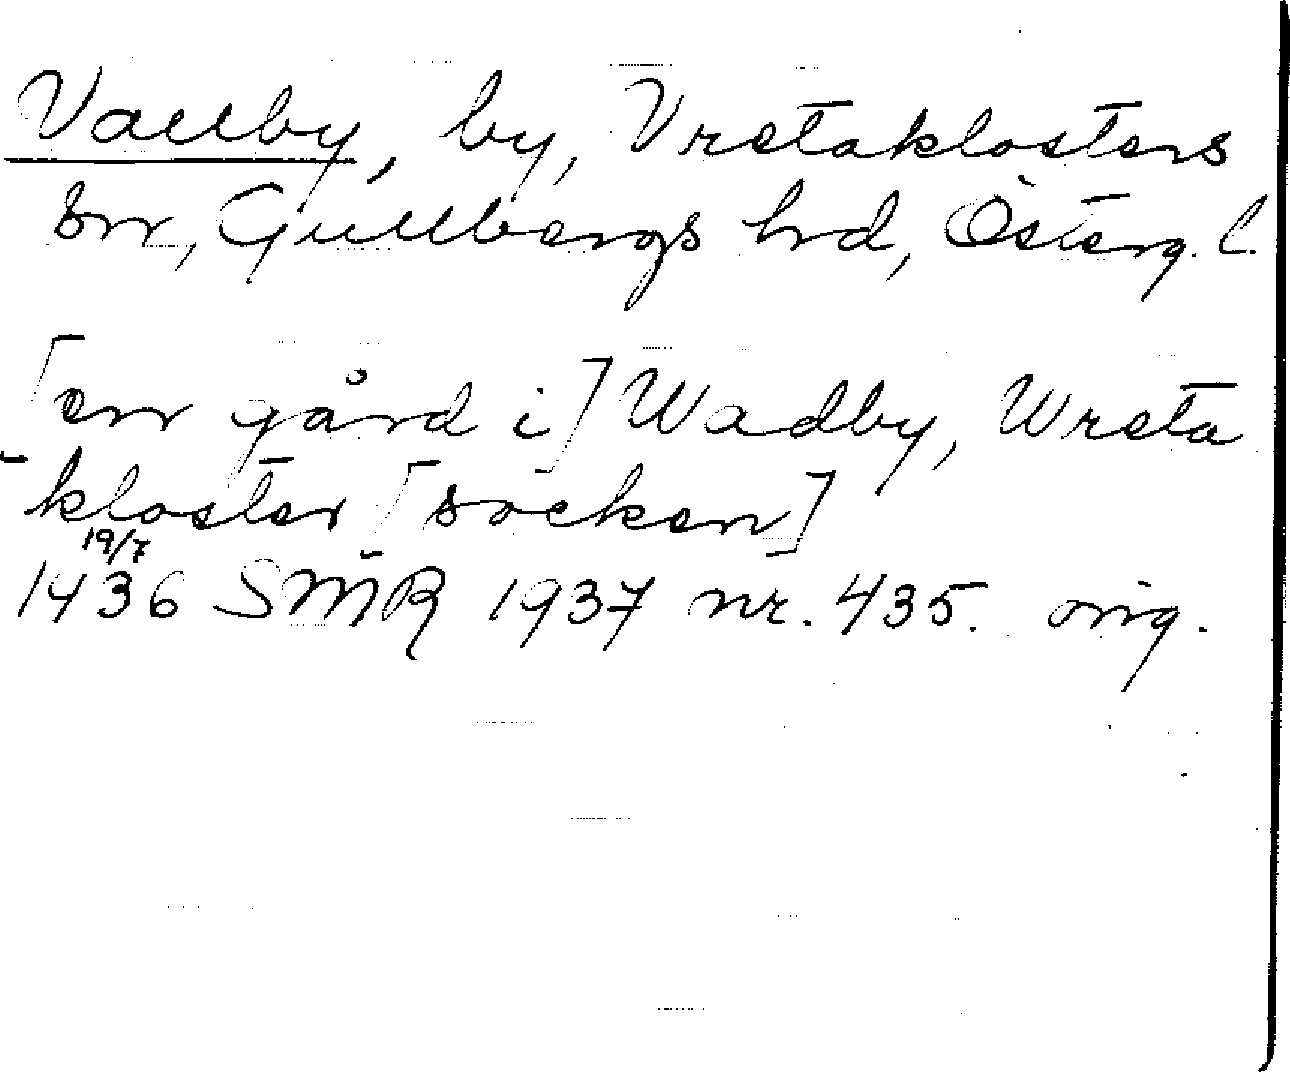 Vallby, by, Vretaklosters
sn, Gullbergs hrd, Österg. l.
[en gård i] Wadby, Wreta
kloster [socken]
19/7
1436 SMR 1937 nr. 435. orig.